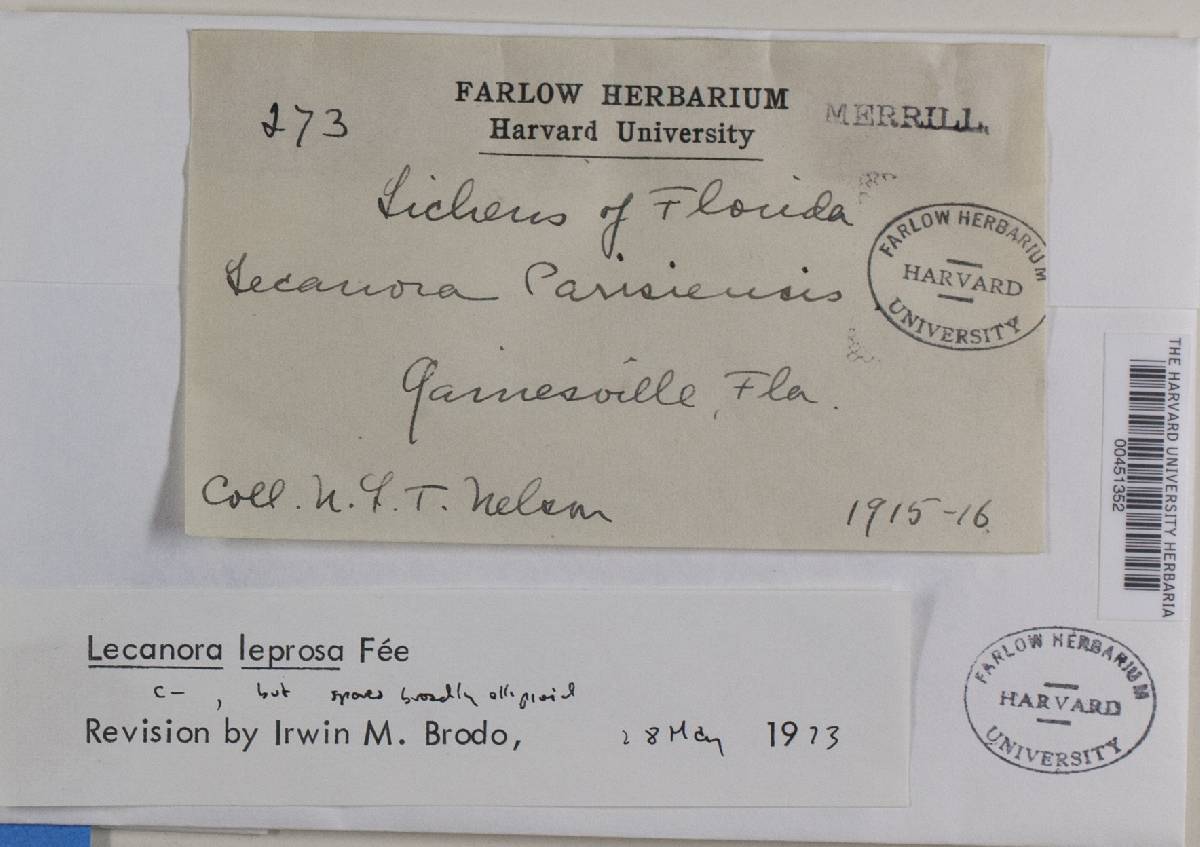 FARLOW HERBARIUM
Harvard University
MERRILL
273
Lichens of Florida
Lecanora Parisiensis
Gainesville, Fla.
Coll. N. L. T. Nelson
1915-16
FARLOW HERBARIUM
HARVARD
UNIVERSITY
THE HARVARD UNIVERSITY HERBARIA
00451352
Lecanora leprosa Fée
C- , but spores broadly ellipsoid
Revision by Irwin M. Brodo, 28 May 1973
FARLOW HERBARIUM
HARVARD
UNIVERSITY